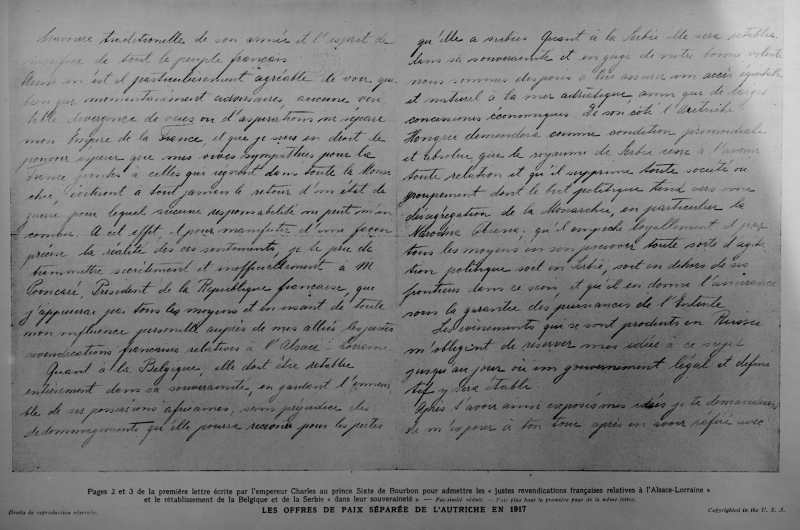 bravoure traditionelle de son armée et l'esprit de
sacrifice de tout le peuple français
Aussi m'est il particulièrement agréable de voir que
bien que momentanément adversaires, aucune véri
table divergence de vues ou d'aspirations ne sépare
mon Empire de la France, et que je suis en droit de
pouvoir espérer que mes vives sympathies pour la
France jointes à celles qui règnent dans toute la Monar
chie, éviteront à tout jamais le retour d'un état de
guerre pour lequel aucune responsabilité ne peut m'in
comber. A cet effet, et pour manifester d'une façon
précise la réalité de ces sentiments, je te prie de
transmettre secrètement et inofficiellement à M
Poincaré, Président de la République française, que
j'appuierai par tous les moyens et en usant de toute
mon influence personelle auprès de mes alliés les justes
revendications françaises relatives à l'Alsace-Loraine
Quant à la Belgique, elle doit être rétablie
entièrement dans sa souveraineté, en gardant l'ensem
ble de ses possessions africaines, sans préjudice des
dédommagements qu'elle pourra recevoir pour les pertes
qu'elle a subies. Quant à la Serbie elle sera rétablie
dans sa souveraineté et en gage de notre bonne volonté
nous sommes disposés à lui assurer un accès équitable
et naturel à la mer adriatique ainsi que de larges
concessions économiques. De son côté l'Autriche
Hongrie demandera comme condition primordiale
et absolue, que le royaume de Serbie cesse à l'avenir
toute relation et qu'il supprime toute société ou
groupement dont le but politique tend vers une
désagrégation de la Monarchie, en particulier la
Narodna Obrana; qu'il empêche loyallement et par
tous les moyens en son pouvoir toute sorte d'agita
tion politique soit en Serbie, soit en dehors de ses
frontières dans ce sens, et qu'il en donne l'assurance
sous la garantie des puissances de l'Entente.
Les événements qui se sont produits en Russie
m'obligent de réserver mes idées à ce sujet
jusqu'au jour où un gouvernement légal et défini
tif y sera établi.
Après t'avoir ainsi exposé mes idées je te demanderai
de m'exposer à ton tour après en avoir référé avec
Pages 2 et 3 de la première lettre écrite par l'empereur Charles au prince Sixte de Bourbon pour admettre les « justes revendications françaises relatives à l'Alsace-Lorraine »
et le rétablissement de la Belgique et de la Serbie « dans leur souveraineté ». — Fac-similé réduit. — Voir plus haut la première page de la même lettre.
Droits de reproduction réservés.
LES OFFRES DE PAIX SÉPARÉE DE L'AUTRICHE EN 1917
Copyrighted in the U. S. A.